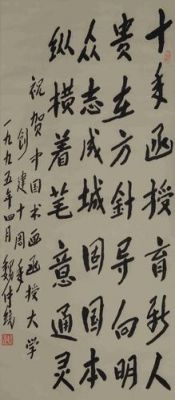 十年函授育新人
贵在方针导向明
众志成城固国本
纵横着笔意通灵
祝贺中国书画函授大学
创建十周年
一九九五年四月